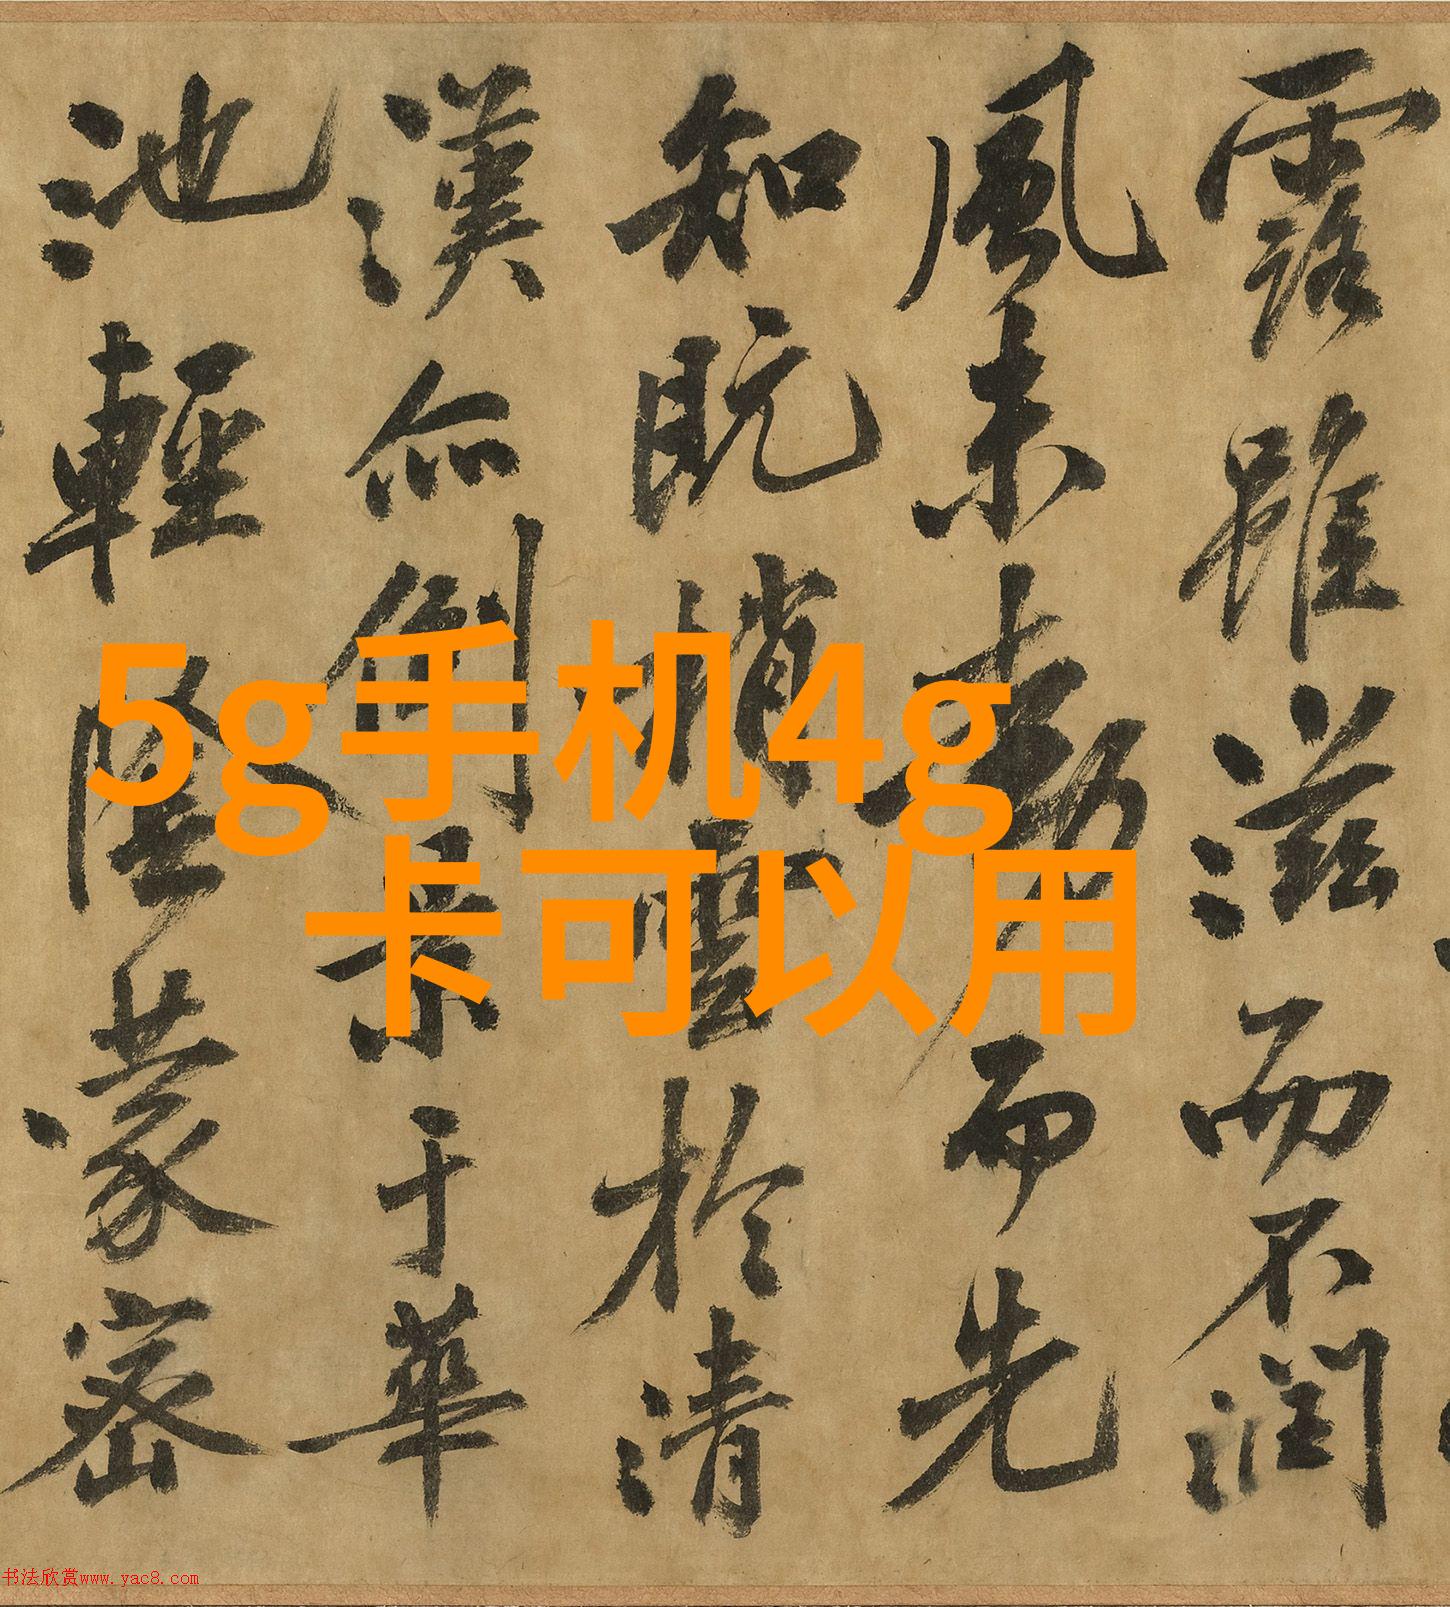 露雖滋而不潤
風未動而先
知既梢雲於清
漢亦倒景于華
池輕陰蒙密
5g手机4g
卡可以用
书法欣赏www.yac8.com